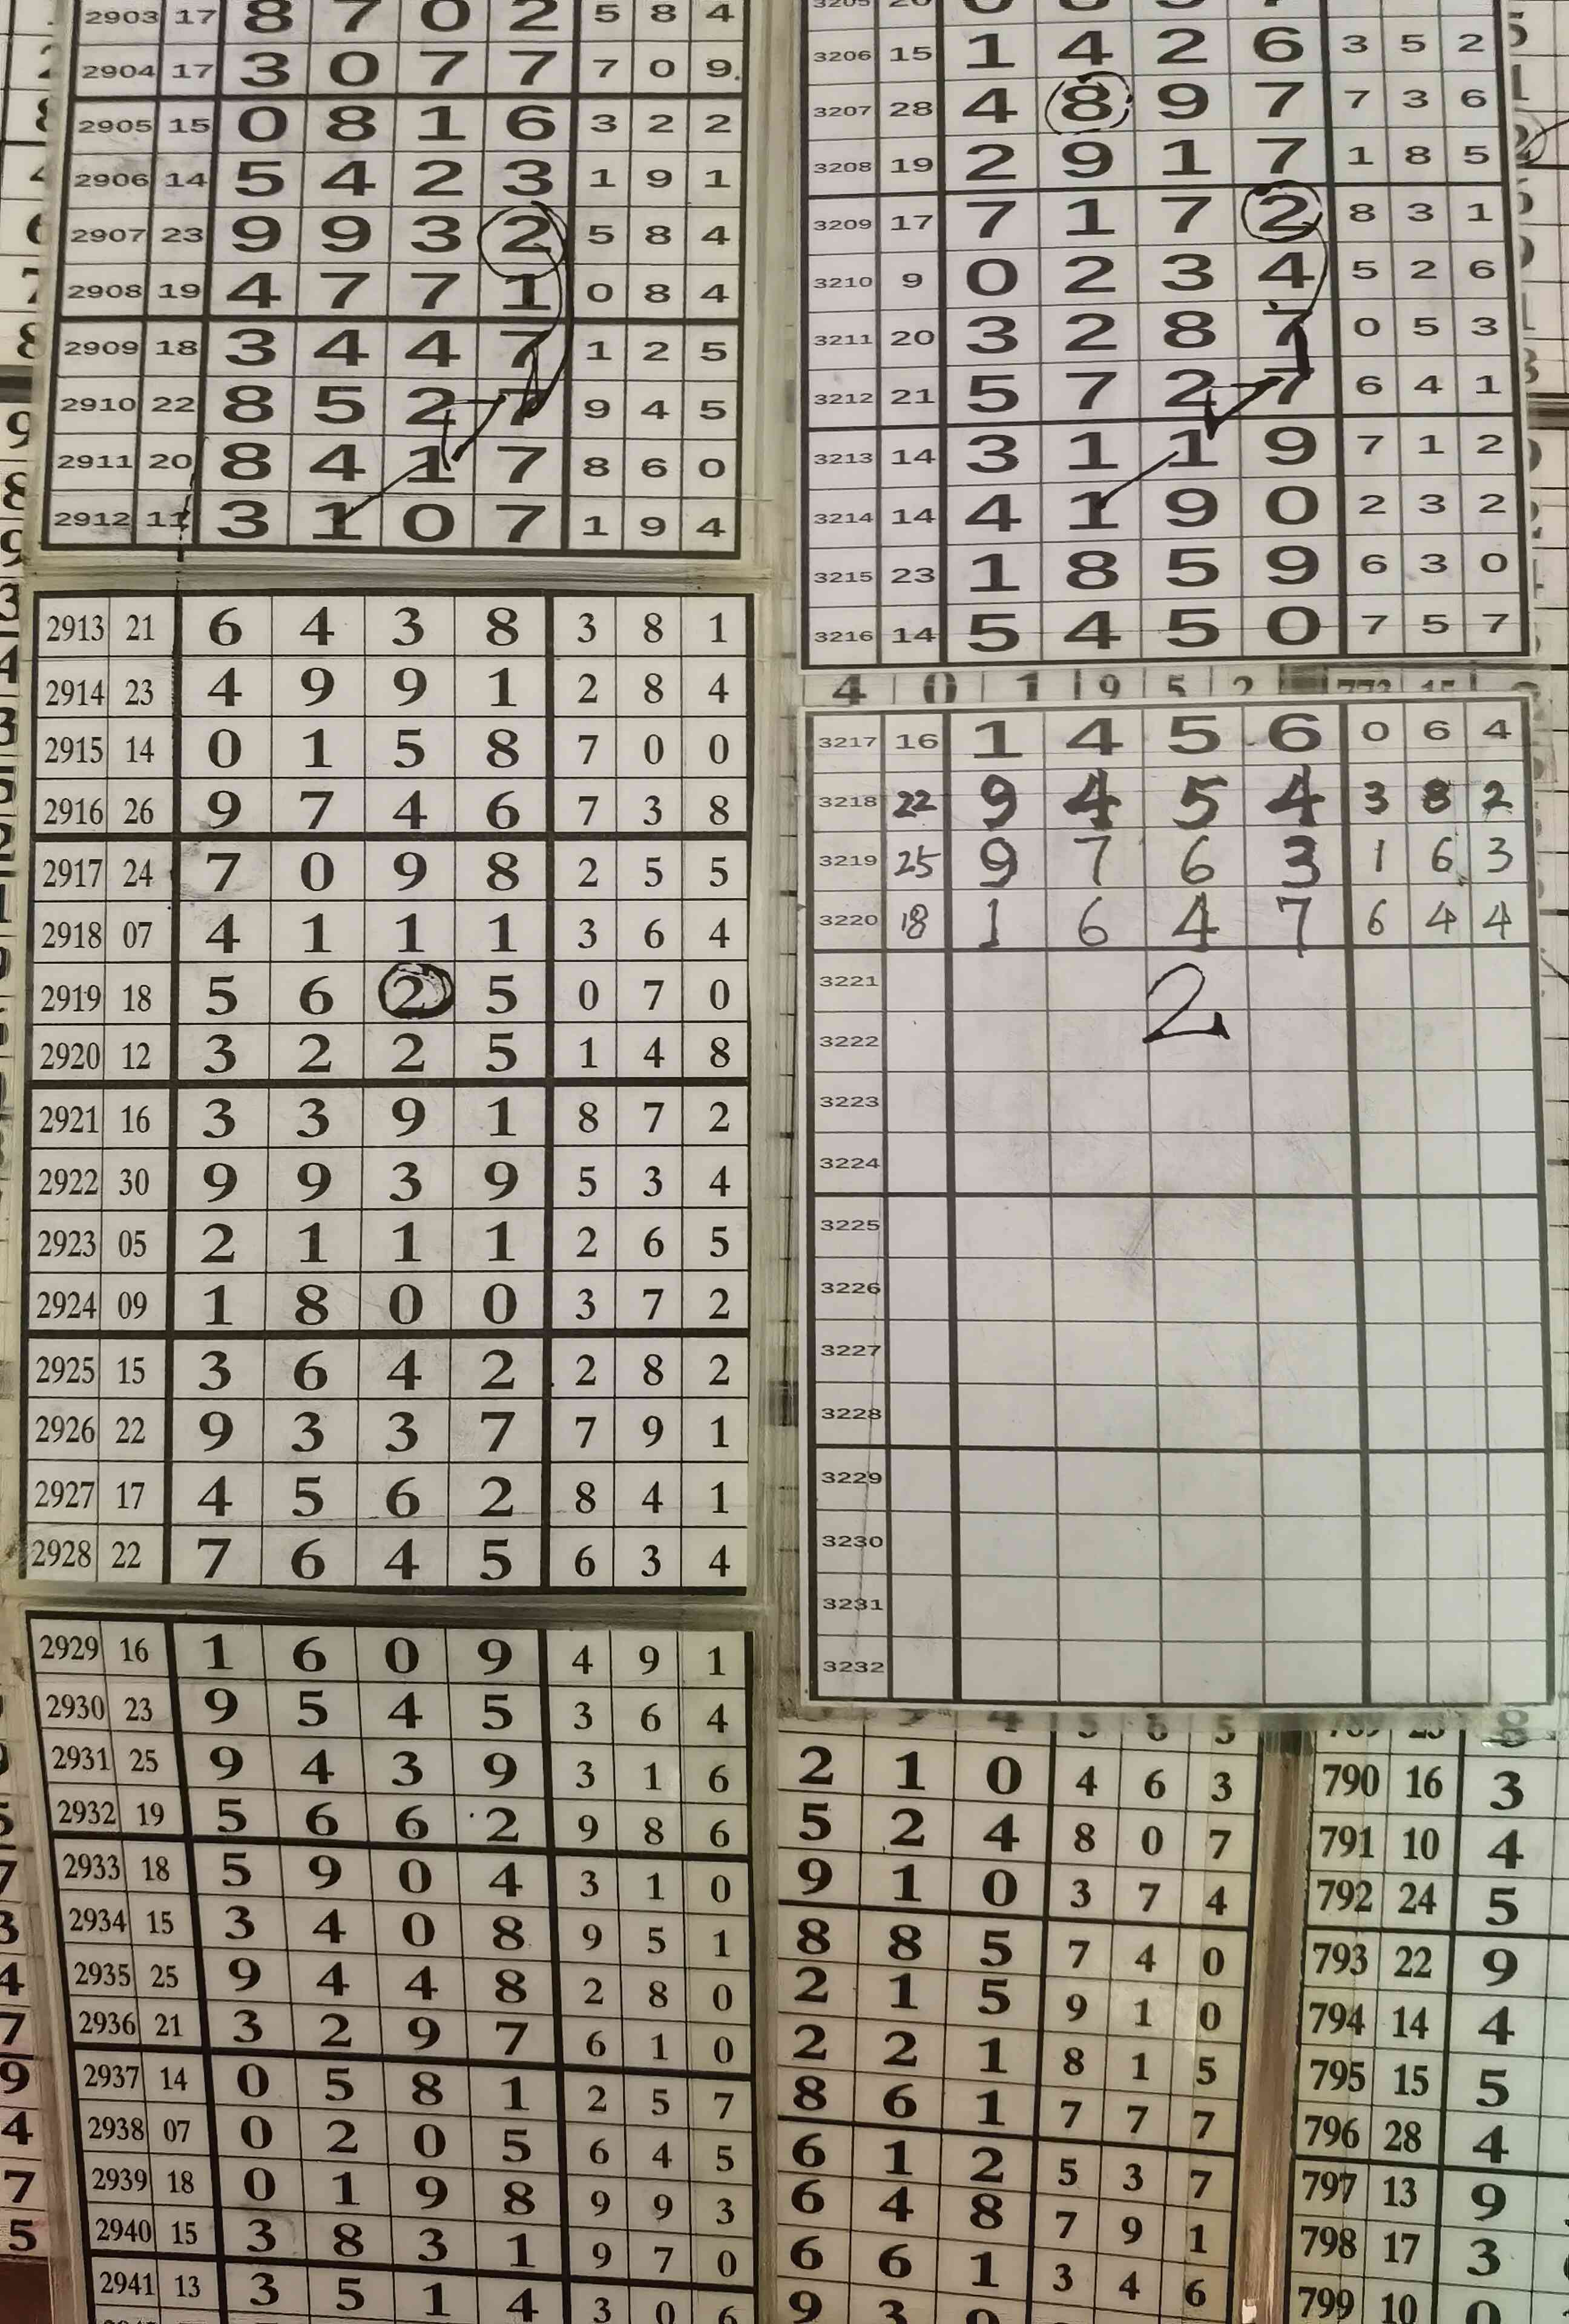 2903 17 8 7 0 2 5 8 4
2904 17 3 0 7 7 7 0 9
2905 15 0 8 1 6 3 2 2
2906 14 5 4 2 3 1 9 1
2907 23 9 9 3 2 5 8 4
2908 19 4 7 7 1 0 8 4
2909 18 3 4 4 7 1 2 5
2910 22 8 5 2 7 9 4 5
2911 20 8 4 1 7 8 6 0
2912 11 3 1 0 7 1 9 4
2913 21 6 4 3 8 3 8 1
2914 23 4 9 9 1 2 8 4
2915 14 0 1 5 8 7 0 0
2916 26 9 7 4 6 7 3 8
2917 24 7 0 9 8 2 5 5
2918 07 4 1 1 1 3 6 4
2919 18 5 6 2 5 0 7 0
2920 12 3 2 2 5 1 4 8
2921 16 3 3 9 1 8 7 2
2922 30 9 9 3 9 5 3 4
2923 05 2 1 1 1 2 6 5
2924 09 1 8 0 0 3 7 2
2925 15 3 6 4 2 2 8 2
2926 22 9 3 3 7 7 9 1
2927 17 4 5 6 2 8 4 1
2928 22 7 6 4 5 6 3 4
2929 16 1 6 0 9 4 9 1
2930 23 9 5 4 5 3 6 4
2931 25 9 4 3 9 3 1 6
2932 19 5 6 6 2 9 8 6
2933 18 5 9 0 4 3 1 0
2934 15 3 4 0 8 9 5 1
2935 25 9 4 4 8 2 8 0
2936 21 3 2 9 7 6 1 0
2937 14 0 5 8 1 2 5 7
2938 07 0 2 0 5 6 4 5
2939 18 0 1 9 8 9 9 3
2940 15 3 8 3 1 9 7 0
2941 13 3 5 1 4 3 0 6
3206 15 1 4 2 6 3 5 2
3207 28 4 8 9 7 7 3 6
3208 19 2 9 1 7 1 8 5
3209 17 7 1 7 2 8 3 1
3210 9 0 2 3 4 5 2 6
3211 20 3 2 8 7 0 5 3
3212 21 5 7 2 7 6 4 1
3213 14 3 1 1 9 7 1 2
3214 14 4 1 9 0 2 3 2
3215 23 1 8 5 9 6 3 0
3216 14 5 4 5 0 7 5 7
4 0 1 9 5 2
3217 16 1 4 5 6 0 6 4
3218 22 9 4 5 4 3 8 2
3219 25 9 7 6 3 1 6 3
3220 18 1 6 4 7 6 4 4
3221
2
3222
3223
3224
3225
3226
3227
3228
3229
3230
3231
3232
2 1 0 4 6 3
5 2 4 8 0 7
9 1 0 3 7 4
8 8 5 7 4 0
2 1 5 9 1 0
2 2 1 8 1 5
8 6 1 7 7 7
6 1 2 5 3 7
6 4 8 7 9 1
6 6 1 3 4 6
790 16 3
791 10 4
792 24 5
793 22 9
794 14 4
795 15 5
796 28 4
797 13 9
798 17 3
799 10